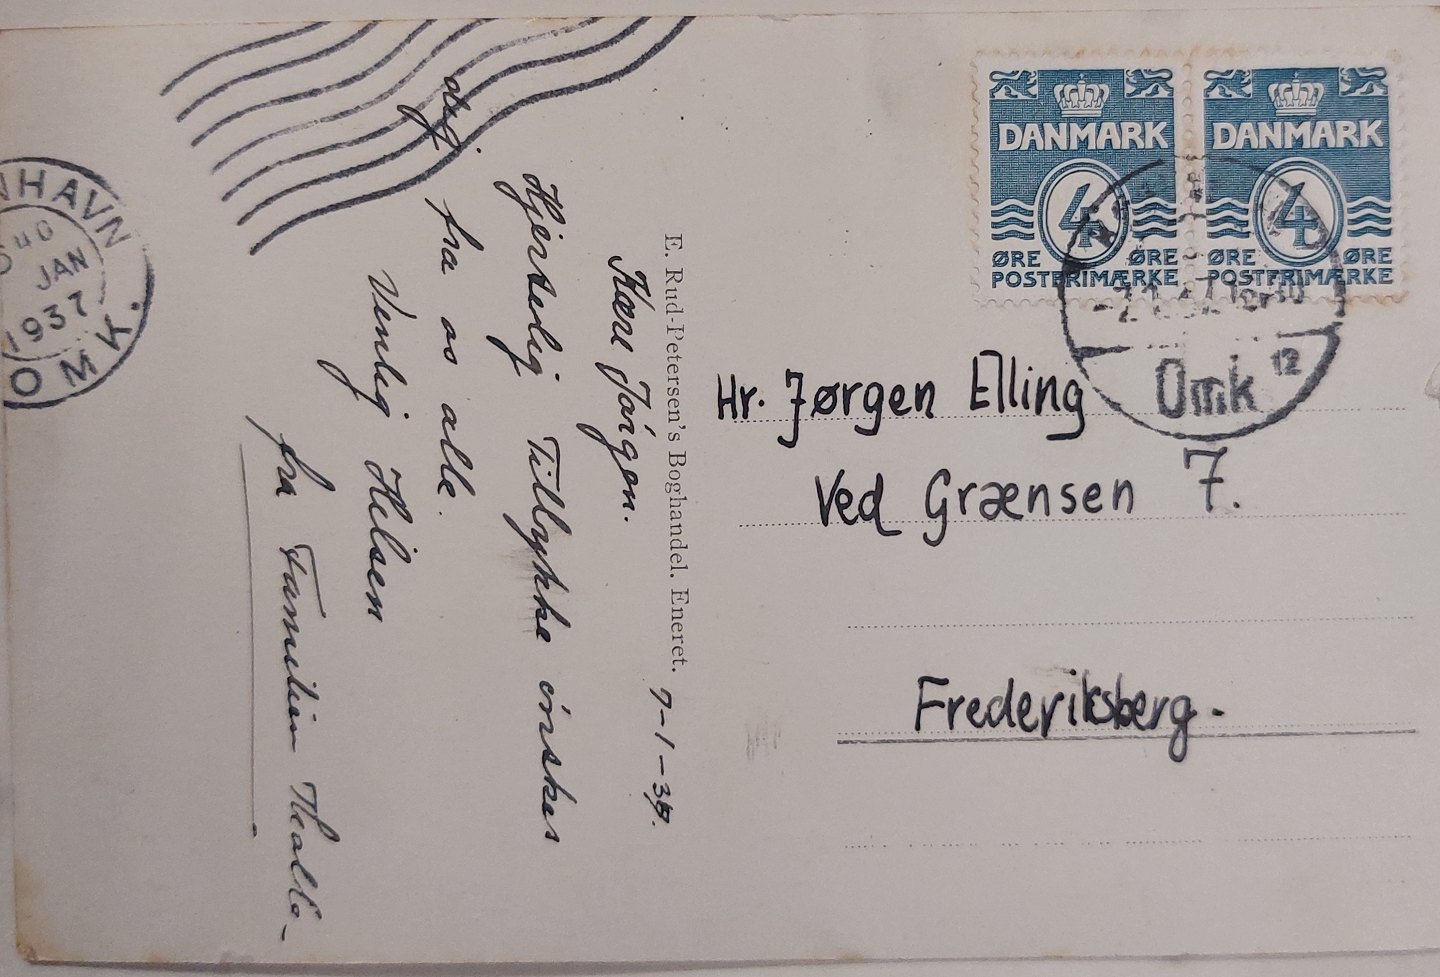 7-1-37.
Kære Jørgen.
Hjertelig Tillykke ønskes
dig fra os alle.
Venlig Hilsen
fra Familien
E. Rud-Petersen's Boghandel. Eneret.
DANMARK
4
ØRE ØRE
POSTFRIMÆRKE
DANMARK
4
ØRE ØRE
POSTFRIMÆRKE
Omk 12
Hr. Jørgen Elling
Ved Grænsen 7.
Frederiksberg.
NHAVN
JAN
1937
OMK.